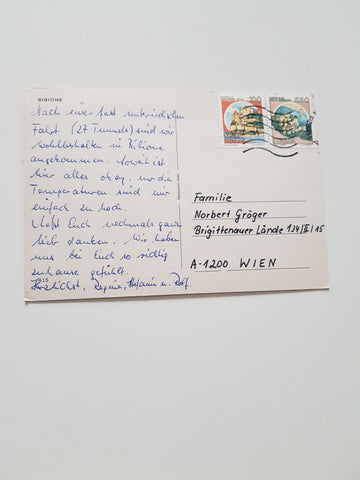 BIBIONE
Nach einer fast unterirdischen
Fahrt (27 Tunnels) sind wir
wohlbehalten in Bibione
angekommen. Soweit ist
hier alles okay, nur die
Temperaturen sind mir
einfach zu hoch.
Laßt Euch nochmals ganz
lieb danken. Wir haben
uns bei Euch so richtig
zuhause gefühlt.
Herzlichst, Regina, Stefanie u. Rolf.
100
550
Familie
Norbert Gröger
Brigittenauer Lände 134/II/15
A-1200 WIEN